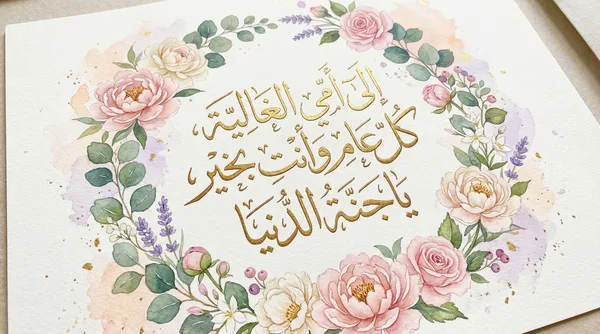 إلى أمّي الغالِيَّة،
كُلّ عَام وَأنتِ بخَيْر
يَا جَنَّةُ الدُّنيَا